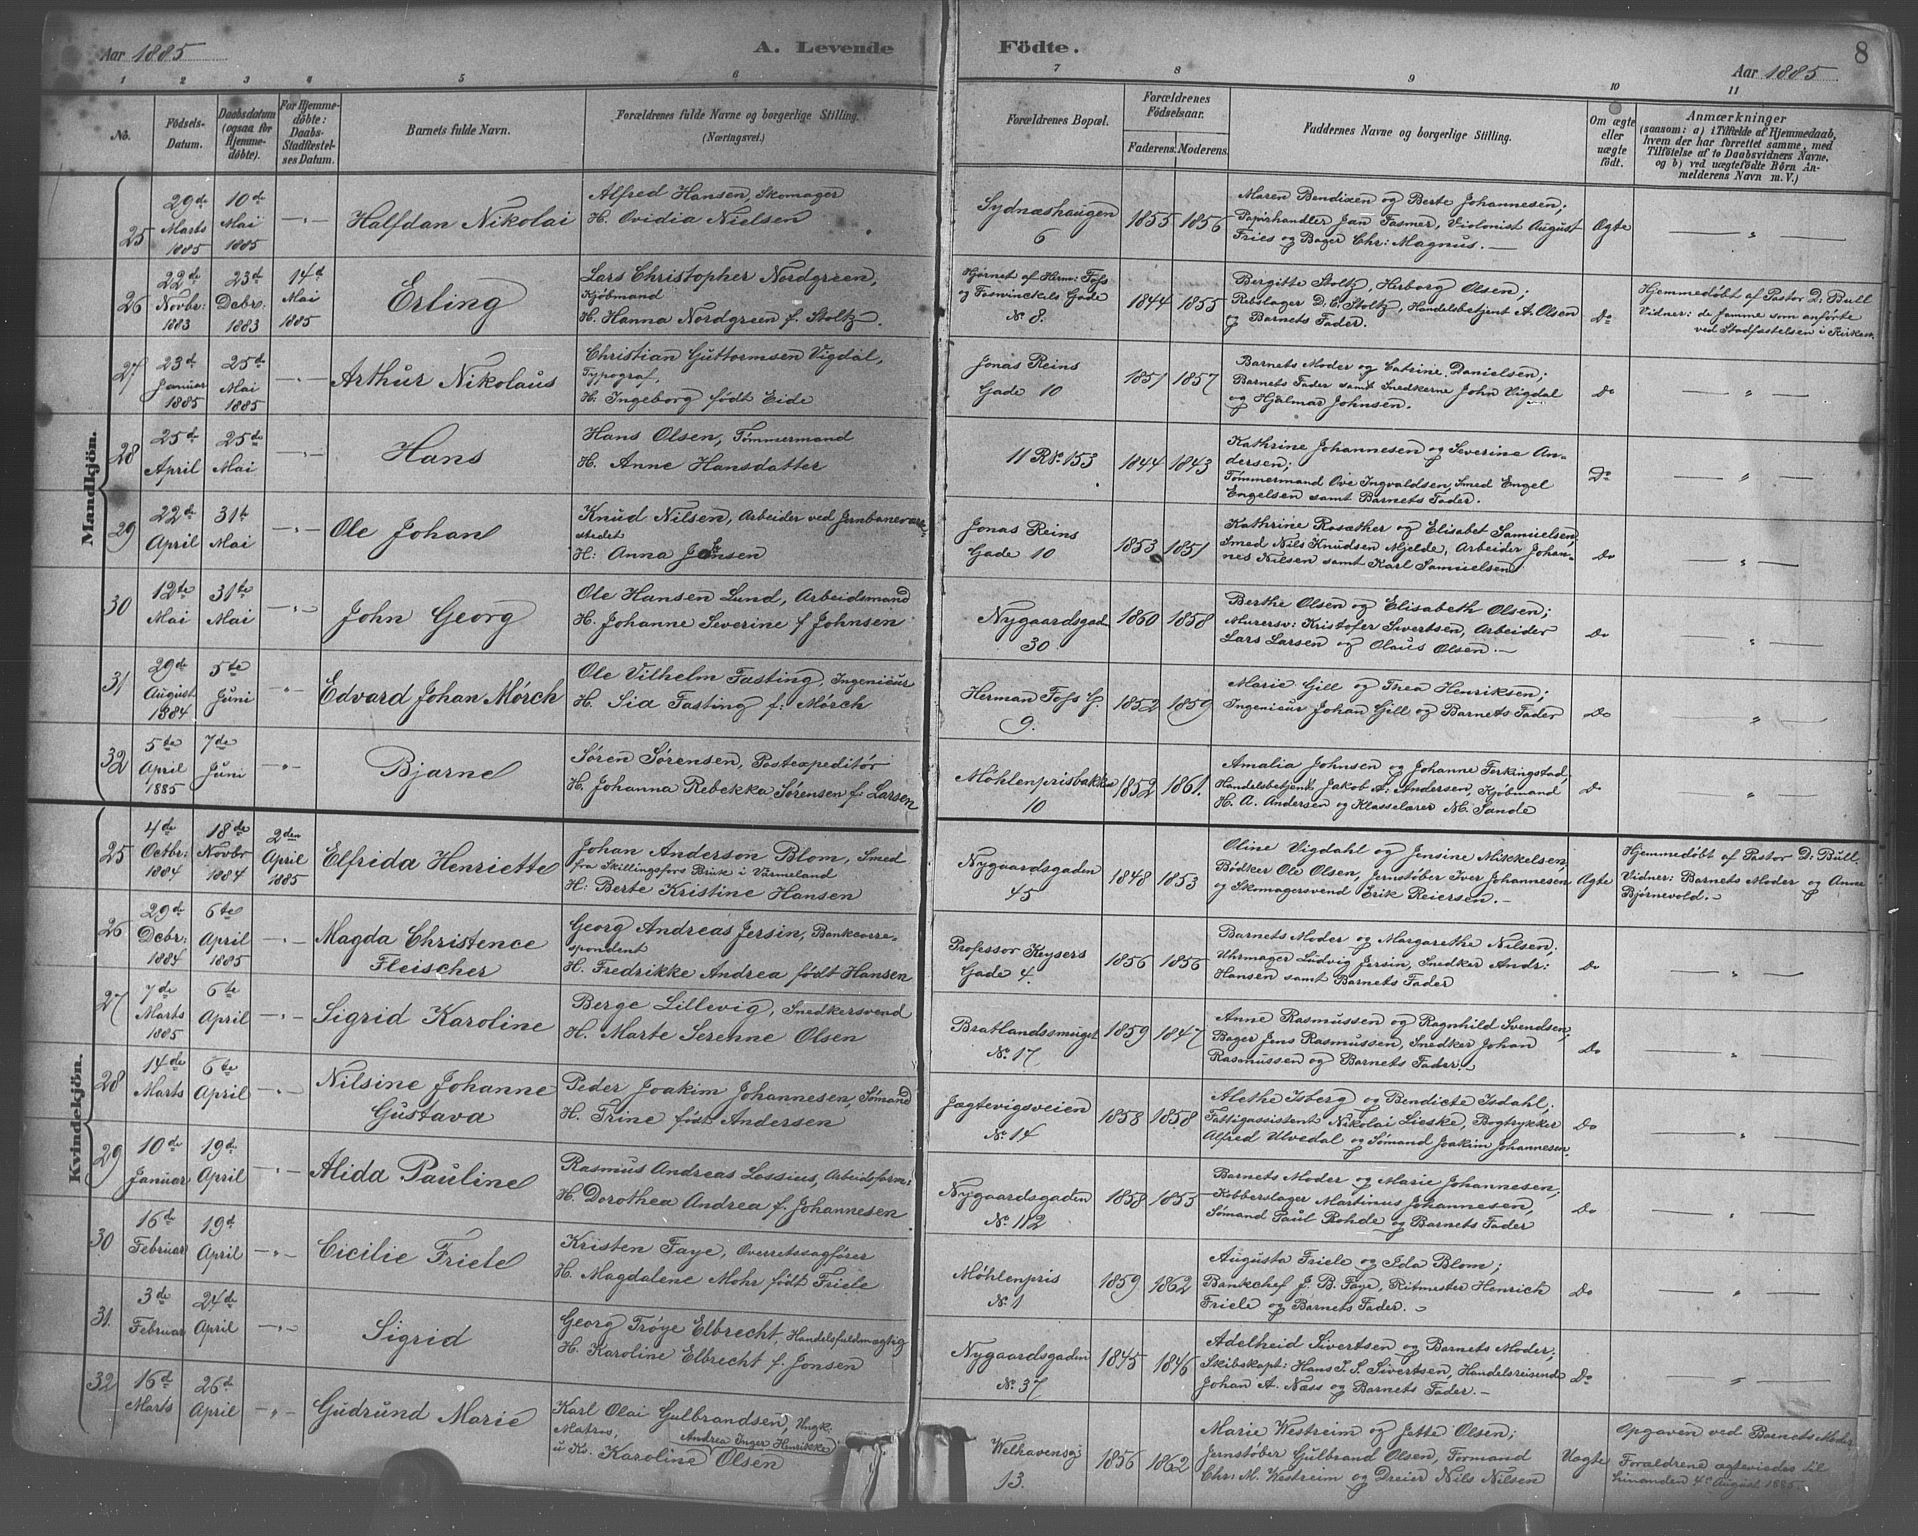 Aar 1885
A. Levende
Födte.
Aar 1885
8
1 2 3 4 5 6 7 8 9 10 11
No.
Födsels-Datum.
Daabsdatum (ogsaa for Hjemme-döbte).
For Hjemme-döbte: Daabs-Stadfæstel-ses Datum.
Barnets fulde Navn.
Forældrenes fulde Navne og borgerlige Stilling.
(Næringsvei.)
Forældrenes Bopæl.
Forældrenes Födselsaar.
Faderens. Moderens.
Faddernes Navne og borgerlige Stilling.
Om ægte eller uægte födt.
Anmærkninger
(saasom: a) i Tilfælde af Hjemmedaab,
hvem der har forrettet samme, med
Tilföielse af to Daabsvidners Navne,
og b) ved uægtefödte Börn An-
melderens Navn m. V.)
Mandkjön.
25 29de Marts 1885 10de Mai 1885 Halfdan Nikolai
Alfred Hansen, Skomager
H. Ovidia Nielsen
Sydnæshaugen 6 1855 1856
Maren Bendixen og Berte Johannesen;
Papirhandler Jan Fasmer, Violonist August
Fries og Bager Chr: Magnus.
Ægte
26 22de Novbr: 1883 23de Debr. 1883 14d Mai 1885 Erling
Lars Christopher Nordgreen,
Kjøbmand
H. Hanna Nordgreen f. Stoltz.
Hjørnet af Herm: Foss
og Foswinckels Gade
No 8. 1844 1855
Bergitte Stoltz, Herborg Olsen;
Rebslager D. E. Stoltz, Handelsbetjent A. Olsen
og Barnets Fader.
Do
Hjemmedøbt af Pastor D: Bull
Vidner: de samme som anførte
ved Stadfæstelsen i Kirken.
27 23d Januar 1885 25de Mai 1885 Arthur Nikolaus
Christian Guttormsen Vigdal,
Typograf,
H. Ingeborg født Eide
Jonas Reins
Gade 10 1851 1857
Barnets Moder og Catrine Danielsen;
Barnets Fader samt Snedkerne John Vigdal
og Hjalmar Johnsen.
Do
28 25de April 25de Mai Hans
Hans Olsen, Tømmermand
H. Anne Hansdatter
11 R No. 153 1844 1843
Kathrine Johannesen og Severine An-
dersen;
Tømmermand Ove Ingvaldsen, Smed Engel
Engelsen samt Barnets Fader.
Do
29 22de April 31te Mai Ole Johan
Knud Nilsen, Arbeider ved Jernbaneværk-
stedet
H: Anna Johnsen
Jonas Reins
Gade 10 1853 1851
Kathrine Rosæther og Elisabet Samuelsen,
Smed Nils Knudsen Mjelde, Arbeider Johan-
nes Nilsen samt Karl Samuelsen
Do
30 12te Mai 31te Mai John Georg
Ole Hansen Lund, Arbeidsmand
H. Johanne Severine f Johnsen
Nygaardsgad. 30 1860 1858
Berthe Olsen og Elisabeth Olsen;
Murersv: Kristofer Sivertsen, Arbeider
Lars Larsen og Olaus Olsen.
Do
31 29de August 1884 5te Juni Edvard Johan Mørch
Ole Vilhelm Fasting, Ingeniør
H. Sia Fasting f: Mørch
Herman Foss G. 9. 1852 1859
Marie Gill og Thea Henriksen;
Ingenieur Johan Gill og Barnets Fader
Do
32 5te April 1885 7de Juni Bjarne
Søren Sørensen, Postexpeditør
H. Johanna Rebekka Sørensen f: Larsen
Møhlenprisbakken 10 1852 1861.
Amalia Johnsen og Johanne Forkingstad,
Handelsbetjent Jakob A. Andersen, Kjøbmand
H. A. Andersen og Klasselærer M. Sande
Do
Kvindekjön.
25 4de Octbr: 1884 18de Novbr 1884 2den April 1885 Elfrida Henriette
Johan Anderson Blom, Smed
fra Skillingsfors Bruk i Värmeland
H: Berte Kristine Hansen
Nygaardsgaden 45 1848 1853
Oline Vigdahl og Jensine Mikkelsen,
Bødker Ole Olsen, Jernstøber Iver Johannesen
og Skomagersvend Erik Reiersen.
Ægte
Hjemmedøbt af Pastor D: Bull
Vidner: Barnets Moder og Anne
Bjørnevold.
26 29d Debr: 1884 6te April 1885 Magda Christence
Fleischer
Georg Andreas Jersin, Bankcorre-
spondent
H. Fredrikke Andrea født Hansen
Professor Keysers
Gade 4. 1856 1856
Barnets Moder og Margarethe Nilsen;
Uhrmager Ludvig Jersin, Snedker Andr:
Hansen samt Barnets Fader
Do
27 7de Marts 1885 6te April Sigrid Karoline
Berge Lillevig, Snedkersvend
H. Marte Serenne Olsen
Bratlandssmuget
No 17 1859 1847
Anne Rasmussen og Ragnhild Svendsen,
Bager Jens Rasmussen, Snedker Johan
Rasmussen og Barnets Fader.
Do
28 14de Marts 6te April Nilsine Johanne
Gustava
Peder Joakim Johannesen, Sømand
H. Trine født Andersen
Jægtevigsveien
No 14 1858 1858
Alethe Isberg og Bendicte Isdahl;
Fattigassistent Nikolai Lieske, Bogtrykker
Alfred Ulvedal og Sømand Joakim Johannesen.
Do
29 10de Januar 19de April Alida Pauline
Rasmus Andreas Lessius, Arbeidsform:
H. Dorothea Andrea f. Johannesen
Nygaardsgaden
No 112 1858 1855
Barnets Moder og Marie Johannesen;
Kobberslager Martinus Johannesen,
Sømand Paul Rohde og Barnets Fader
Do
30 16de Februar 19d April Cicilie Friele
Kristen Faye, Overretssagfører
H. Magdalene Mohr født Friele
Møhlenpris
No 1 1859 1862
Augusta Friele og Ida Blom;
Bankchef J. B. Faye, Ritmester Henrich
Friele og Barnets Fader.
Do
31. 3de Februar 24de April Sigrid
Georg Trøye Elbrecht, Handelsfuldmægtig
H. Karoline Elbrecht f. Jonsen
Nygaardsgaden
No 37 1845 1846
Adelheid Sivertsen og Barnets Moder;
Skibskapt: Hans J. S. Sivertsen, Handelsreisende
Johan A. Næss og Barnets Fader.
Do
32 16d Marts 26de April Gudrund Marie
Karl Olai Gulbrandsen, Ungk.
Matros,
Andrea Inger Henrikke
u Ks. Karoline Olsen
Welhavensg: 13. 1856 1862
Marie Westreim og Jette Olsen;
Jernstøber Gulbrand Olsen, Formand
Chr: M. Westreim og Dreier Nils Nilsen
Uægte
Opgaven ved Barnets Moder
Forældrene ægteviedes til
hinanden 4de August 1885.